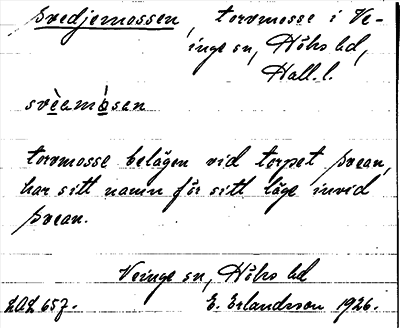 Svedjemossen, torvmosse i Ve-
inge sn, Höks hd,
Hall. l.
svèamòsen
torvmosse belägen vid torpet Svean,
har sitt namn för sitt läge invid
Svean.
Veinge sn, Höks hd
LAL 657. E. Erlandsson 1926.